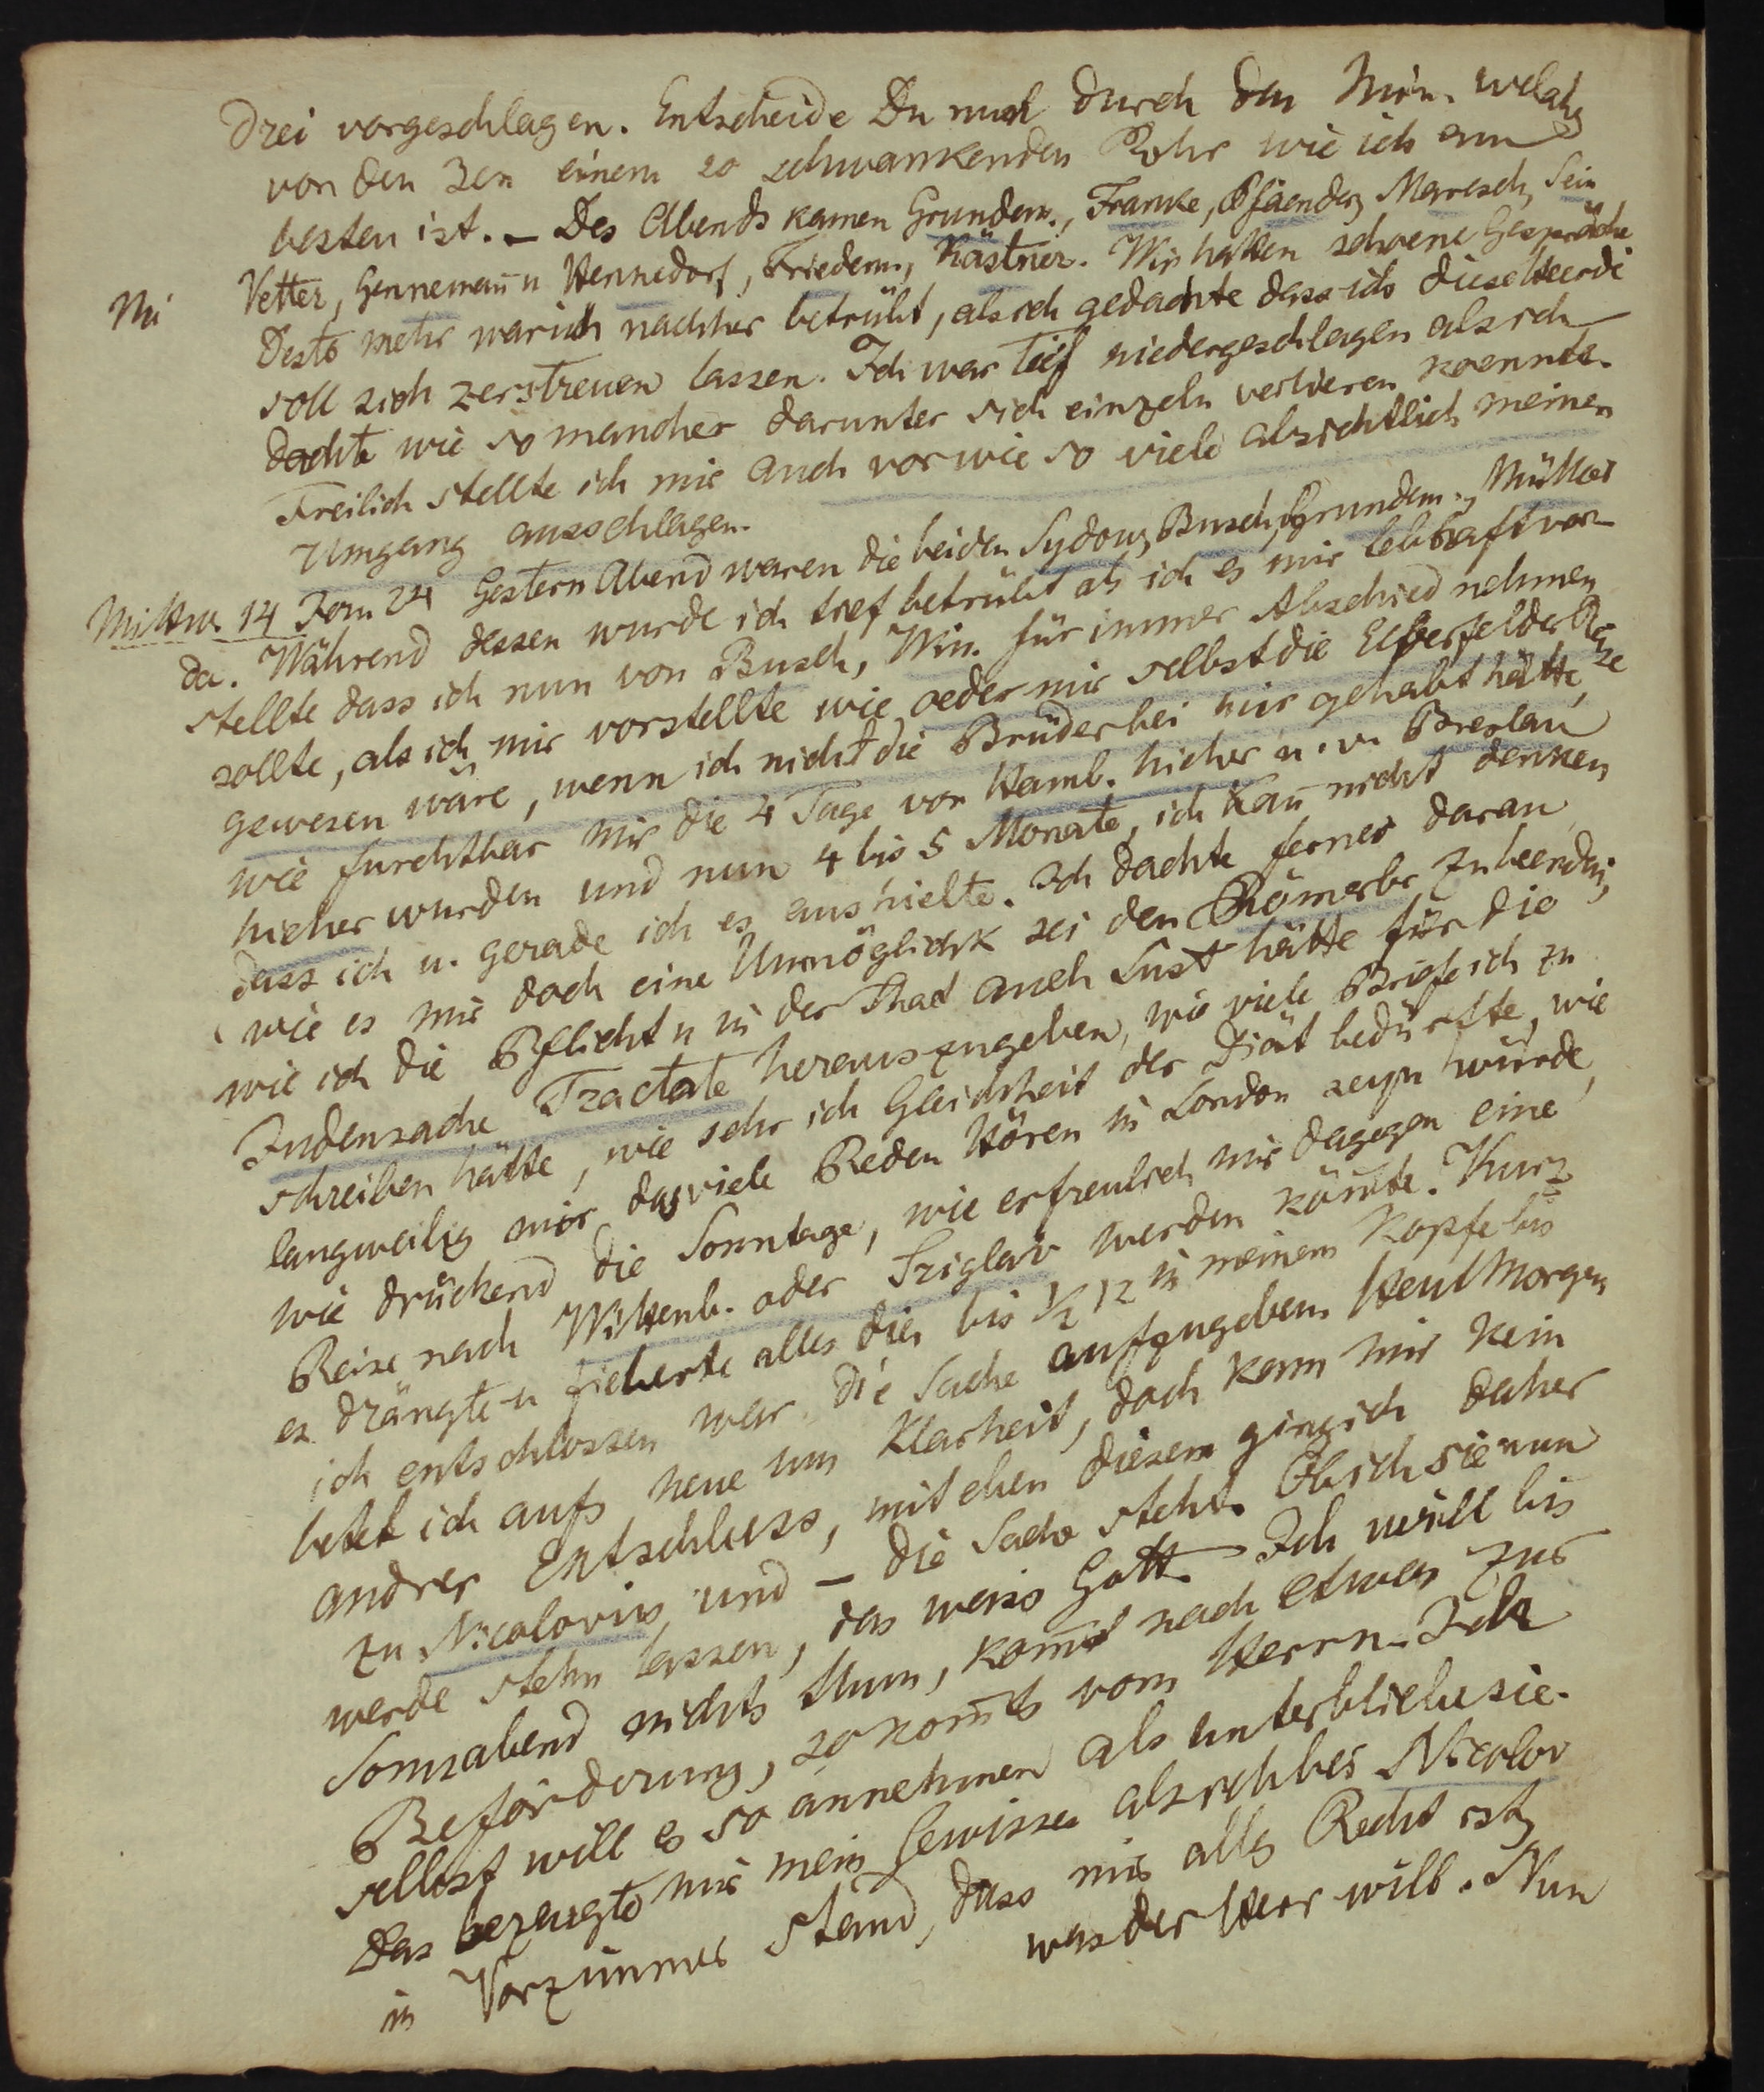 drei vorgeschlagen. Entscheide Du nun durch den welches
von den 3en einem so schwankenden Rohr wie ich am
besten ist. – Des Abends kamen Grundem., Franke, Pfaender, Maresch, sein
Vetter, Hennemañ u Hennedorf, Friederm., Kästner. Wir hatten schoene Gespräche
Mi
Desto mehr war ich nachher betrübt, als ich gedachte dass ich diese Heerde
soll sich zerstreuen lassen. Ich war tief niedergeschlagen als ich
dachte wie so mancher darunter sich einzeln verlieren koennte.
Freilich stellte ich mir auch vor wie so viele absichtlich meinen
Umgang ausschlagen.
Mittw. 14 Jan 24 Gestern Abend waren die beiden Sydow, Busch, Grundem., Müller
da. Während dessen wurde ich tief betrübt als ich es mir lebhaft vor
stellte dass ich nun von Busch, Win. für immer Abschied nehmen
sollte, als ich mir vorstellte wie oeder mir selbst die Elberfelder Reise
gewesen wäre, wenn ich nicht die Brüder bei mir gehabt hätte,
wie furchtbar mir die 4 Tage von Hamb. hieher u. v. Breslau
hieher wurden und nun 4 bis 5 Monate, ich kañ nicht denken
dass ich u. gerade ich es aushielte. Ich dachte ferner daran
wie es mir doch eine Unmöglichk sei den Römerbr zu beenden,
wie ich die Pflicht u in der That auch Lust hätte für die
Judensache Tractate herauszugeben, wie viele Briefe ich zu
schreiben hätte, wie sehr ich Gleichheit der Diät bedürfte, wie
langweilig mir das viele Reden Hören in London seyn würde,
wie drückend die Sonntage, wie erfreulich mir dagegen eine
Reise nach Wittenb. oder werden köñte. Kurz
es drängte u fieberte alles dies bis ½ 12 in meinem Kopfe bis
ich entschlossen war die Sache aufzugeben. Heut Morgen
betet ich aufs neue um Klarheit, doch kam mir kein
andrer Entschluss, mit eben diesem ging ich daher
zu Nicolovius und – die Sache steht. Ob ich sie nun
werde stehn lassen, das weiss Gott. Ich will bis
Sonnabend nichts thun, komt noch etwas zur
Beförderung, so komts vom Herrn. Ich
selbst will es so annehmen als unterbliebe sie.
Das bezeugte mir mein Gewissen als ich bei Nicolov
in Vorzimmer stand, dass mir alles Recht ist,
was der Herr will. Nun